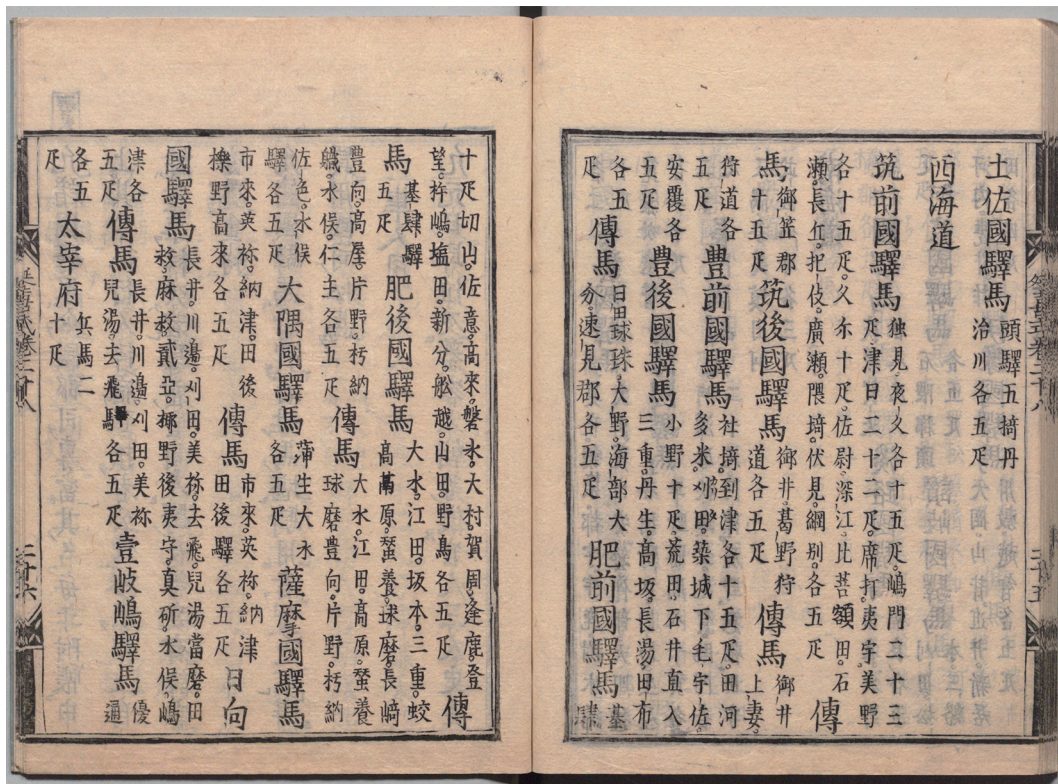 土佐國驛馬 頭驛五椅丹
治川各五疋
西海道
筑前國驛馬 独見夜久各十五疋嶋門二十三
疋津日二十二疋席打夷守美野
各十五疋久尒十疋佐尉深江比菩額田石
瀬長丘把伎廣瀬隈埼伏見綱別各五疋 傳
馬 御笠郡
十五疋 筑後國驛馬 御井葛野狩
道各五疋 傳馬 御井
上妻
狩道各
五疋 豊前國驛馬 社埼到津各十五疋田河
多米刈田築城下毛宇佐
安覆各
五疋 豊後國驛馬 小野十疋荒田石井直入
三重丹生高坂長湯由布
各五
疋 傳馬 日田球珠大野海部大
分速見郡各五疋 肥前國驛馬 基
肆
十疋切山佐意高來磐氷大村賀周逢鹿登
望杵嶋塩田新分舩越山田野鳥各五疋 傳
馬 基肆驛
五疋 肥後國驛馬 大水江田坂本三重蛟
高原蚕養球磨長﨑
豊向高屋片野朽納
軄水俣仁主各五疋 傳馬 大水江田高原蚕養
球磨豊向片野朽納
佐色水俣
驛各五疋 大隅國驛馬 蒲生大水
各五疋 薩摩國驛馬
市來英祢納津田後
櫟野高來各五疋 傳馬 市來英祢納津
田後驛各五疋 日向
國驛馬 長井川邉刈田美祢去飛兒湯當磨田
救麻救貳亞椰野後夷守真斫水俣嶋
津各
五疋 傳馬 長井川邉刈田美祢
兒湯去飛驛各五疋 壹岐嶋驛馬 優
通
各五
疋 太宰府 兵馬二
十疋
延喜式卷二十八
二十六